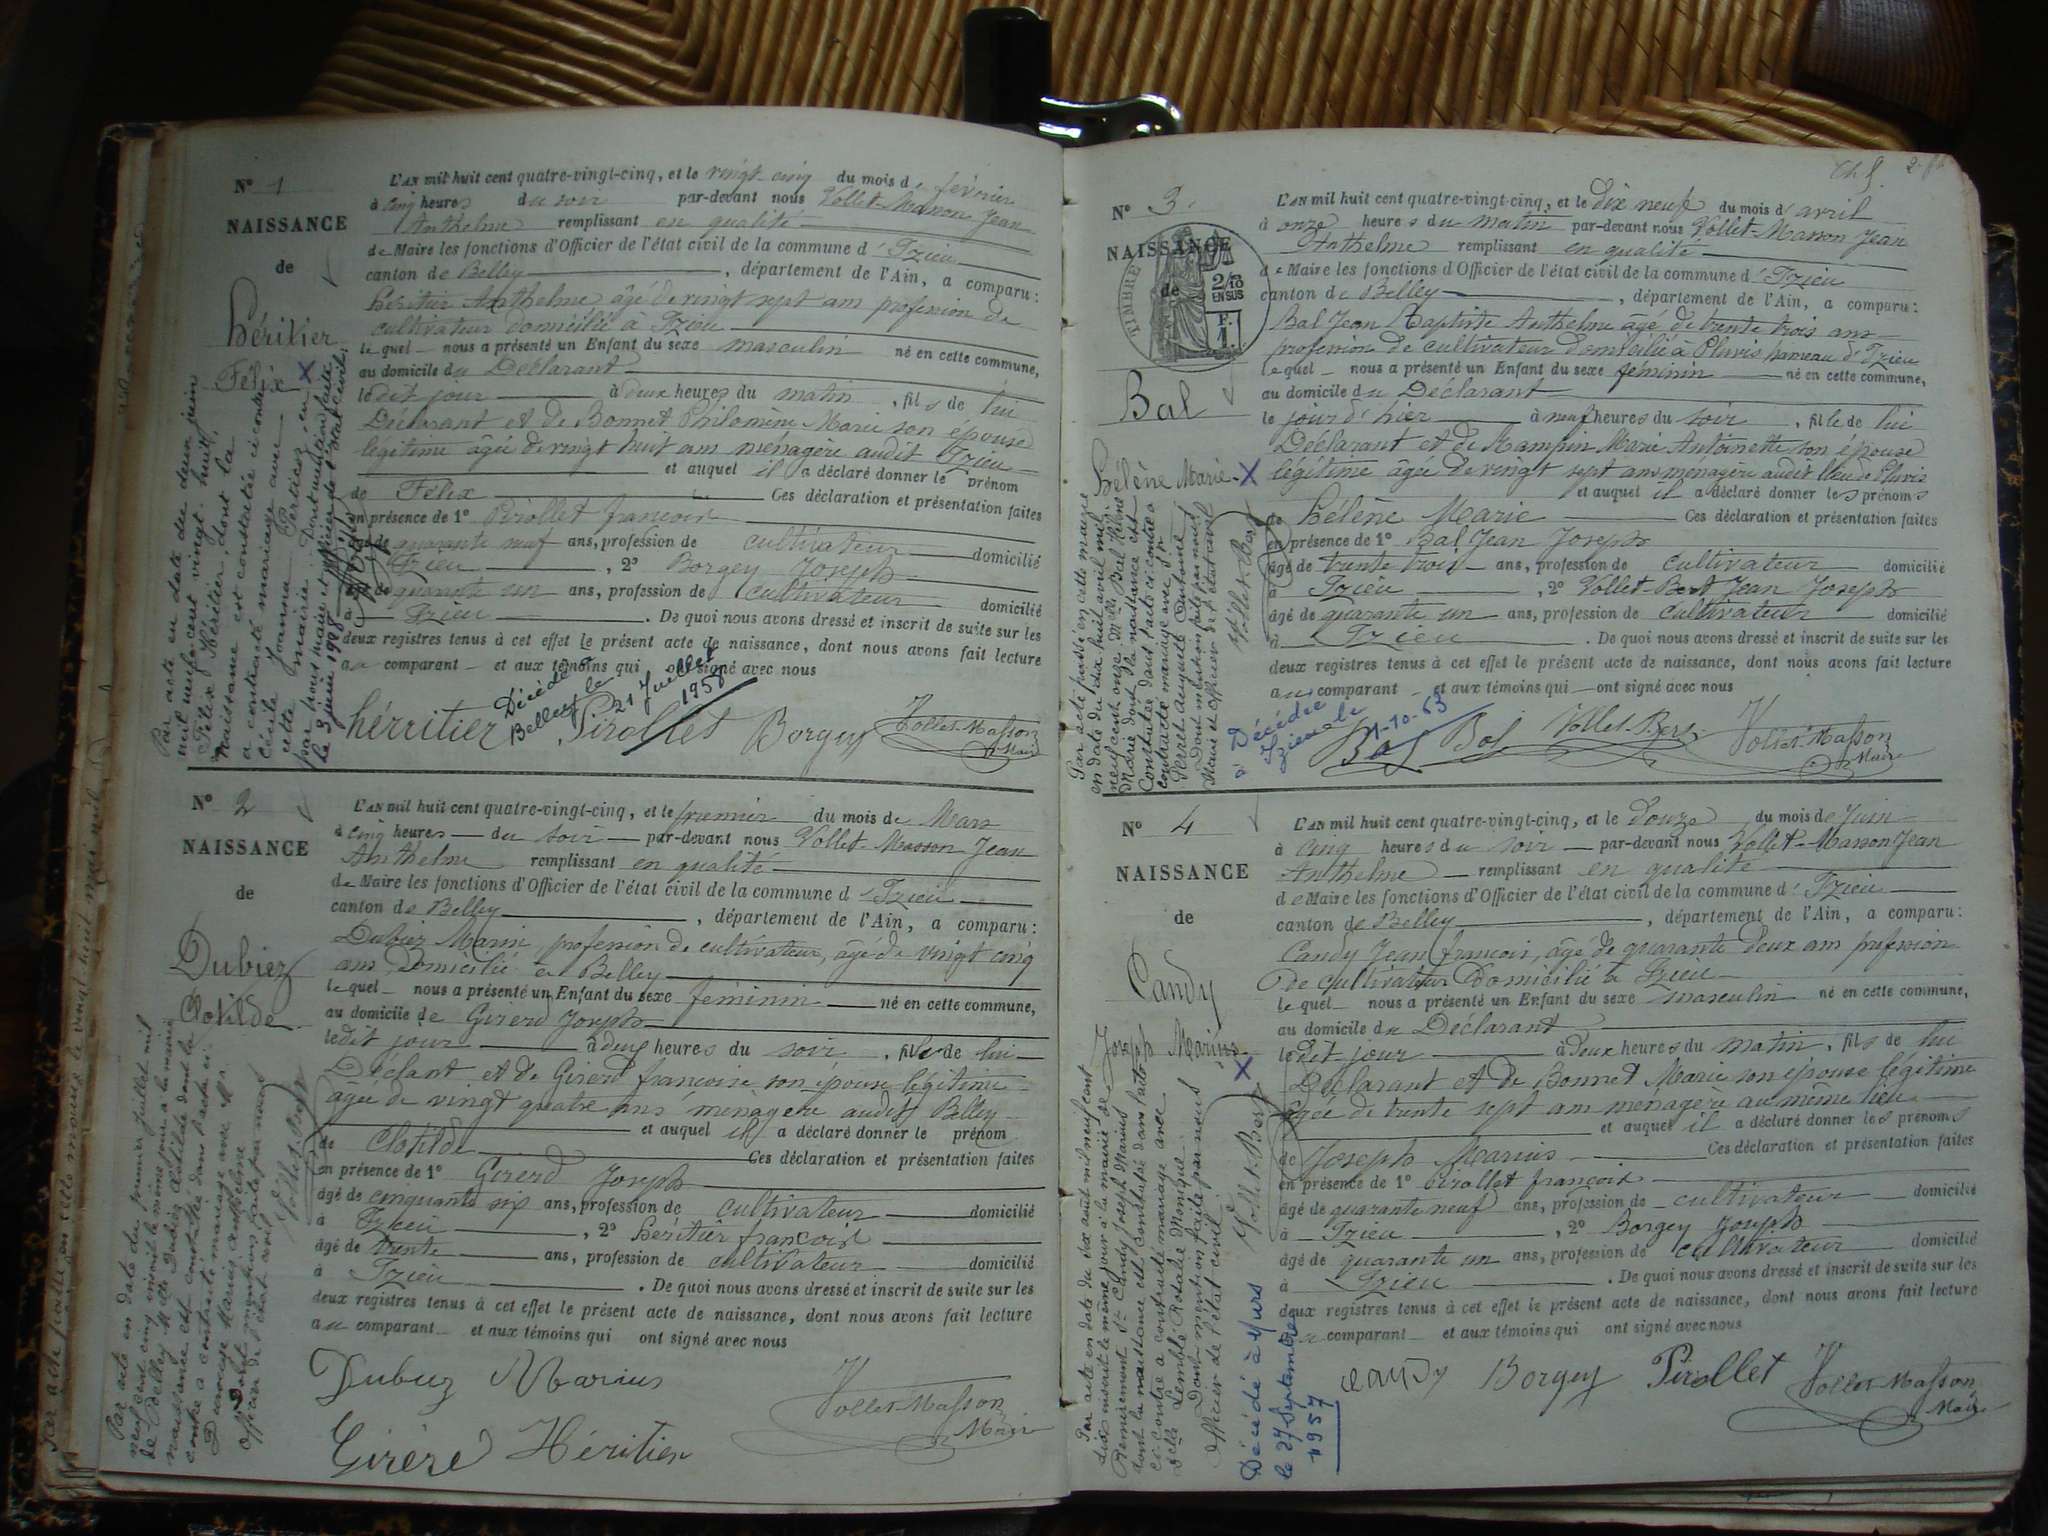 N° 1
NAISSANCE
de
Héritier
Félix
L'AN mil huit cent quatre-vingt-cinq, et le vingt-cinq du mois d février
à cinq heures du soir par-devant nous Vollet-Masson Jean
Anthelme remplissant en qualité
de Maire les fonctions d'Officier de l'état civil de la commune d'Izieu
canton de Belley, département de l'Ain, a comparu:
Héritier Anthelme âgé de vingt sept ans profession de
cultivateur domicilié à Izieu
lequel nous a présenté un Enfant du sexe masculin né en cette commune,
au domicile du Déclarant
le dit jour à deux heures du matin, fils de lui
Déclarant et de Bonnet Philomène Marie son épouse
légitime âgée de vingt huit ans ménagère audit Izieu
et auquel il a déclaré donner le prénom
de Félix Ces déclaration et présentation faites
en présence de 1° Pirollet françois
âgé de quarante neuf ans, profession de cultivateur domicilié
à Izieu, 2° Borgey Joseph
âgé de quarante un ans, profession de cultivateur domicilié
à Izieu. De quoi nous avons dressé et inscrit de suite sur les
deux registres tenus à cet effet le présent acte de naissance, dont nous avons fait lecture
au comparant et aux témoins qui ont signé avec nous
hérritier Pirollet Borgey Vollet-Masson
Maire
Décédé à
Belley le
21 Juillet
1958
Par acte en date du deux juin
mil neuf cent vingt-huit,
Félix Héritier, dont la
naissance est constatée ci-contre
a contracté mariage avec
Cécile Joanna Perticoz, en
cette mairie. Dont mention faite
par nous maire et officier de l'état civil,
le 3 juin 1928
N° 2
NAISSANCE
de
Dubiez
Clotilde
L'AN mil huit cent quatre-vingt-cinq, et le premier du mois de Mars
à cinq heures du soir par-devant nous Vollet-Masson Jean
Anthelme remplissant en qualité
de Maire les fonctions d'Officier de l'état civil de la commune d'Izieu
canton de Belley, département de l'Ain, a comparu:
Dubiez Marin, profession de cultivateur, âgé de vingt cinq
ans domicilié à Belley
lequel nous a présenté un Enfant du sexe féminin né en cette commune,
au domicile de Girerd Joseph
le dit jour à deux heures du soir, fille de lui
Déclant et de Girerd françoise son épouse légitime
âgée de vingt quatre ans ménagère audit Belley
et auquel il a déclaré donner le prénom
de Clotilde Ces déclaration et présentation faites
en présence de 1° Girerd Joseph
âgé de cinquante six ans, profession de cultivateur domicilié
à Izieu, 2° Héritier françois
âgé de trente ans, profession de cultivateur domicilié
à Izieu. De quoi nous avons dressé et inscrit de suite sur les
deux registres tenus à cet effet le présent acte de naissance, dont nous avons fait lecture
au comparant et aux témoins qui ont signé avec nous
Dubiez Marius Vollet-Masson
Girère Héritier Maire
Par acte en date du premier juillet mil
neuf cent cinq inscrit le même jour à la mairie
de Belley Mlle Dubiez Clotilde dont la
naissance est constatée dans l'acte ci-
contre a contracté mariage avec Mr
Marius Anthelme
Dont mention faite par nous
officier de l'état civil
Vollet-Bert
N° 3
NAISSANCE
de
TIMBRE
2/10
EN SUS
F.
1.
Bal
Hélène Marie
L'AN mil huit cent quatre-vingt-cinq, et le Dix neuf du mois d'avril
à onze heures du matin par-devant nous Vollet-Masson Jean
Anthelme remplissant en qualité
de Maire les fonctions d'Officier de l'état civil de la commune d'Izieu
canton de Belley, département de l'Ain, a comparu:
Bal Jean Baptiste Anthelme âgé de trente trois ans
profession de cultivateur domicilié à Pluvis hameau d'Izieu
lequel nous a présenté un Enfant du sexe féminin né en cette commune,
au domicile du Déclarant
le jour d'hier à neuf heures du soir, fille de lui
Déclarant et de Mampin Marie Antoinette son épouse
légitime âgée de vingt sept ans ménagère audit lieu de Pluvis
et auquel il a déclaré donner les prénoms
de Hélène Marie Ces déclaration et présentation faites
en présence de 1° Bal Jean Joseph
âgé de trente trois ans, profession de cultivateur domicilié
à Izieu, 2° Vollet-Bert Jean Joseph
âgé de quarante un ans, profession de cultivateur domicilié
à Izieu. De quoi nous avons dressé et inscrit de suite sur les
deux registres tenus à cet effet le présent acte de naissance, dont nous avons fait lecture
au comparant et aux témoins qui ont signé avec nous
Bal Bal Vollet-Bert Vollet-Masson
Maire
Décédée
à Izieu le
1-10-63
Par acte passé en cette mairie
en date du dix huit avril mil
neuf cent onze Mlle Bal Hélène
Marie dont la naissance est
constatée dans l'acte ci-contre a
contracté mariage avec Mr
Perret Auguste Antoine
Dont mention faite par nous
Maire et officier de l'état civil
Vollet-Bert
N° 4
NAISSANCE
de
Candy
Joseph Marius
L'AN mil huit cent quatre-vingt-cinq, et le Douze du mois de Juin
à cinq heures du soir par-devant nous Vollet-Masson Jean
Anthelme remplissant en qualité
de Maire les fonctions d'Officier de l'état civil de la commune d'Izieu
canton de Belley, département de l'Ain, a comparu:
Candy Jean françois, âgé de quarante deux ans profession
de cultivateur Domicilié à Izieu
lequel nous a présenté un Enfant du sexe masculin né en cette commune,
au domicile du Déclarant
le dit jour à deux heures du matin, fils de lui
Déclarant et de Bonnet Marie son épouse légitime
âgée de trente sept ans ménagère au même lieu
et auquel il a déclaré donner les prénoms
de Joseph Marius Ces déclaration et présentation faites
en présence de 1° Pirollet françois
âgé de quarante neuf ans, profession de cultivateur domicilié
à Izieu, 2° Borgey Joseph
âgé de quarante un ans, profession de cultivateur domicilié
à Izieu. De quoi nous avons dressé et inscrit de suite sur les
deux registres tenus à cet effet le présent acte de naissance, dont nous avons fait lecture
au comparant et aux témoins qui ont signé avec nous
candy Borgey Pirollet Vollet-Masson
Maire
Par acte en date du dix août mil neuf cent
dix inscrit le même jour à la mairie de
Sr Candy Joseph Marius
dont la naissance est constatée dans l'acto
ci-contre a contracté mariage avec
Delle Lemblé Rosalie Monique
Dont mention faite par nous
officier de l'état civil
Vollet-Bert
Décédé à Yurs
le 27 Septembre
1957